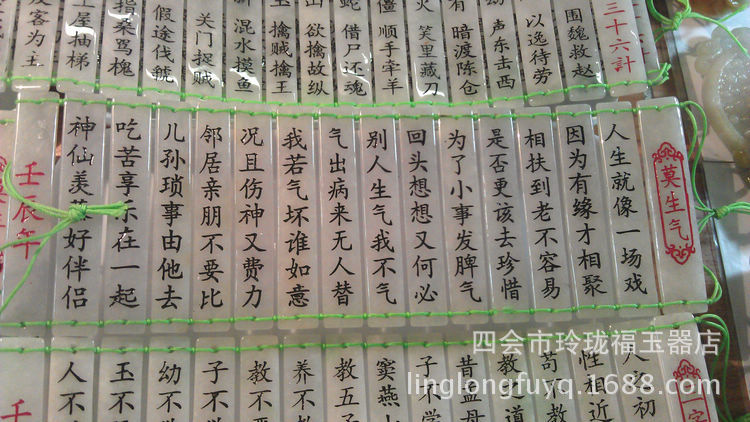 三十六計
围魏救赵
以逸待劳
声东击西
有
暗渡陈仓
火
笑里藏刀
顺手牵羊
蛇
借尸还魂
山
欲擒故纵
擒贼擒王
混水摸鱼
关门捉贼
假途伐虢
指桑骂槐
上屋抽梯
反客为王
莫生气
人生就像一场戏
因为有缘才相聚
相扶到老不容易
是否更该去珍惜
为了小事发脾气
回头想想又何必
别人生气我不气
气出病来无人替
我若气坏谁如意
况且伤神又费力
邻居亲朋不要比
儿孙琐事由他去
吃苦享乐在一起
神仙羡慕好伴侣
壬辰年
人之初
性相近
苟不教
教之道
昔孟母
子不学
窦燕山
教五子
养不教
教不
子不
幼不
玉不
人不
壬
四会市玲珑福玉器店
linglongfuyq.1688.com